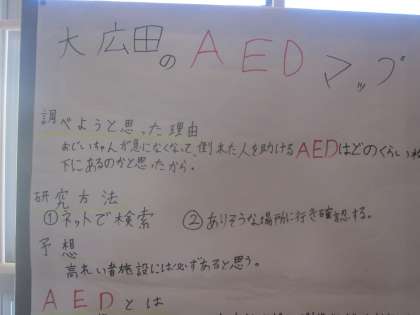 大広田のAEDマップ
調べようと思った理由
おじいちゃんが急になくなって、倒れた人を助けるAEDはどのくらい
下にあるのかと思ったから。
研究方法
①ネットで検索 ②ありそうな場所に行き確認する。
予想
高れい者施設には必ずあると思う。
AEDとは